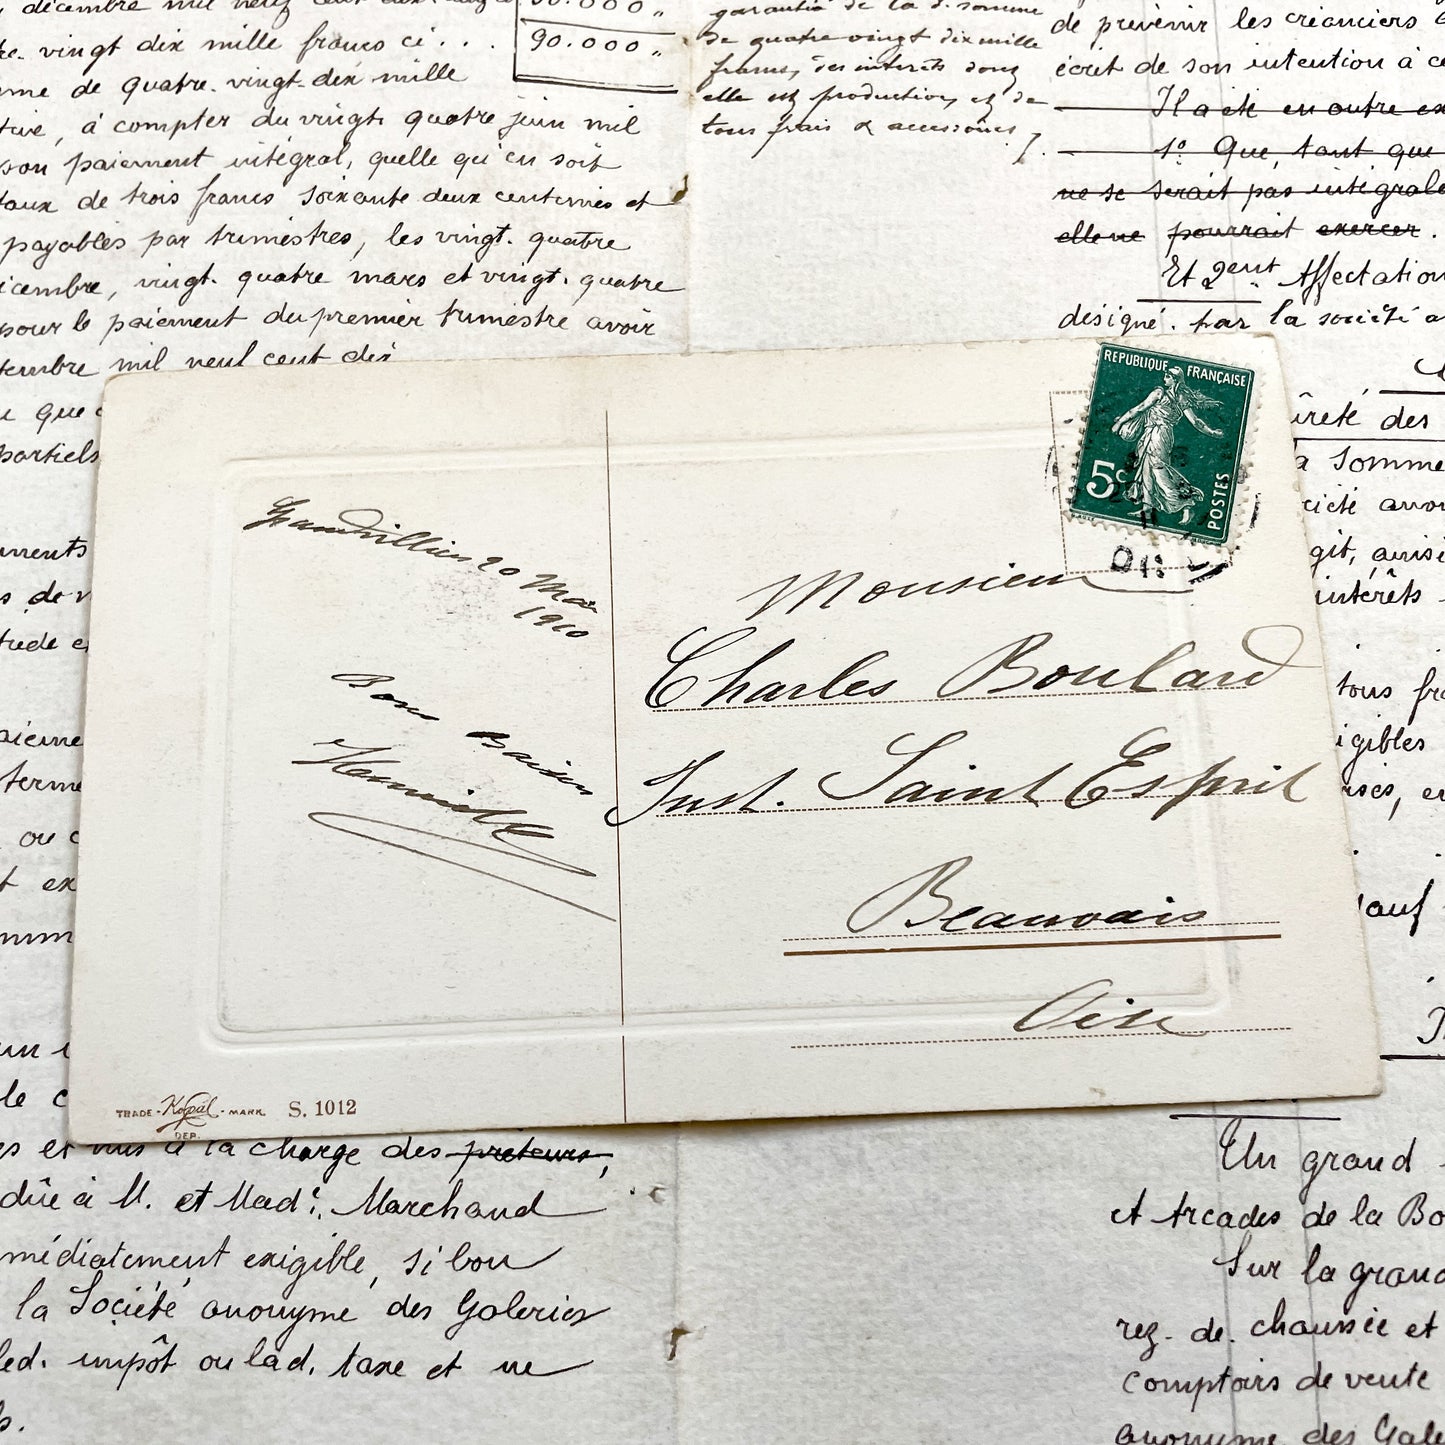 décembre mil neuf cent
50.000 "
vingt dix mille francs ci . . .
90.000 "
me de quatre. vingt-dix mille
à compter du vingt quatre juin mil
son paiement intégral, quelle qu'en soit
taux de trois francs soixante deux centimes et
payables par trimestres, les vingt. quatre
décembre, vingt. quatre mars et vingt. quatre
pour le paiement du premier trimestre avoir
tembre mil neuf cent dix
que
partiels
ments
s de
tude e
terme
, ou c
t ex
le c
es et mis à la charge des preteurs,
dûe à M. et Made. Marchand
médiatement exigible, si bon
la Société anonyme des Galeries
led. impôt ou lad. taxe et ne
garantie de la d. somme
de quatre vingt dix mille
francs, des intérêts dont
elle est productive, et de
tous frais & accessoires /.
de prévenir les créanciers
écrit de son intention à ce
Il a été en outre ex
1° Que, tant que
ne se serait pas intégrale
elle ne pourrait exercer .
Et 2ent. Affectation
désigné. par la société a
ûreté des
a somme
ciété anon
git, ainsi
intérêts
tous fra
igibles
Sauf
Un grand
et Arcades de la Bo
Sur la grand
rez. de. chaussée et
comptoirs de vente
anonyme des Gale
REPUBLIQUE FRANÇAISE
5c
POSTES
Grandvilliers 20 Mai
1910
Bons Baisers
Henriette
Monsieur
Charles Boulard
Inst. Saint Esprit
Beauvais
Oise
TRADE - Kopal - MARK S. 1012
DEP.